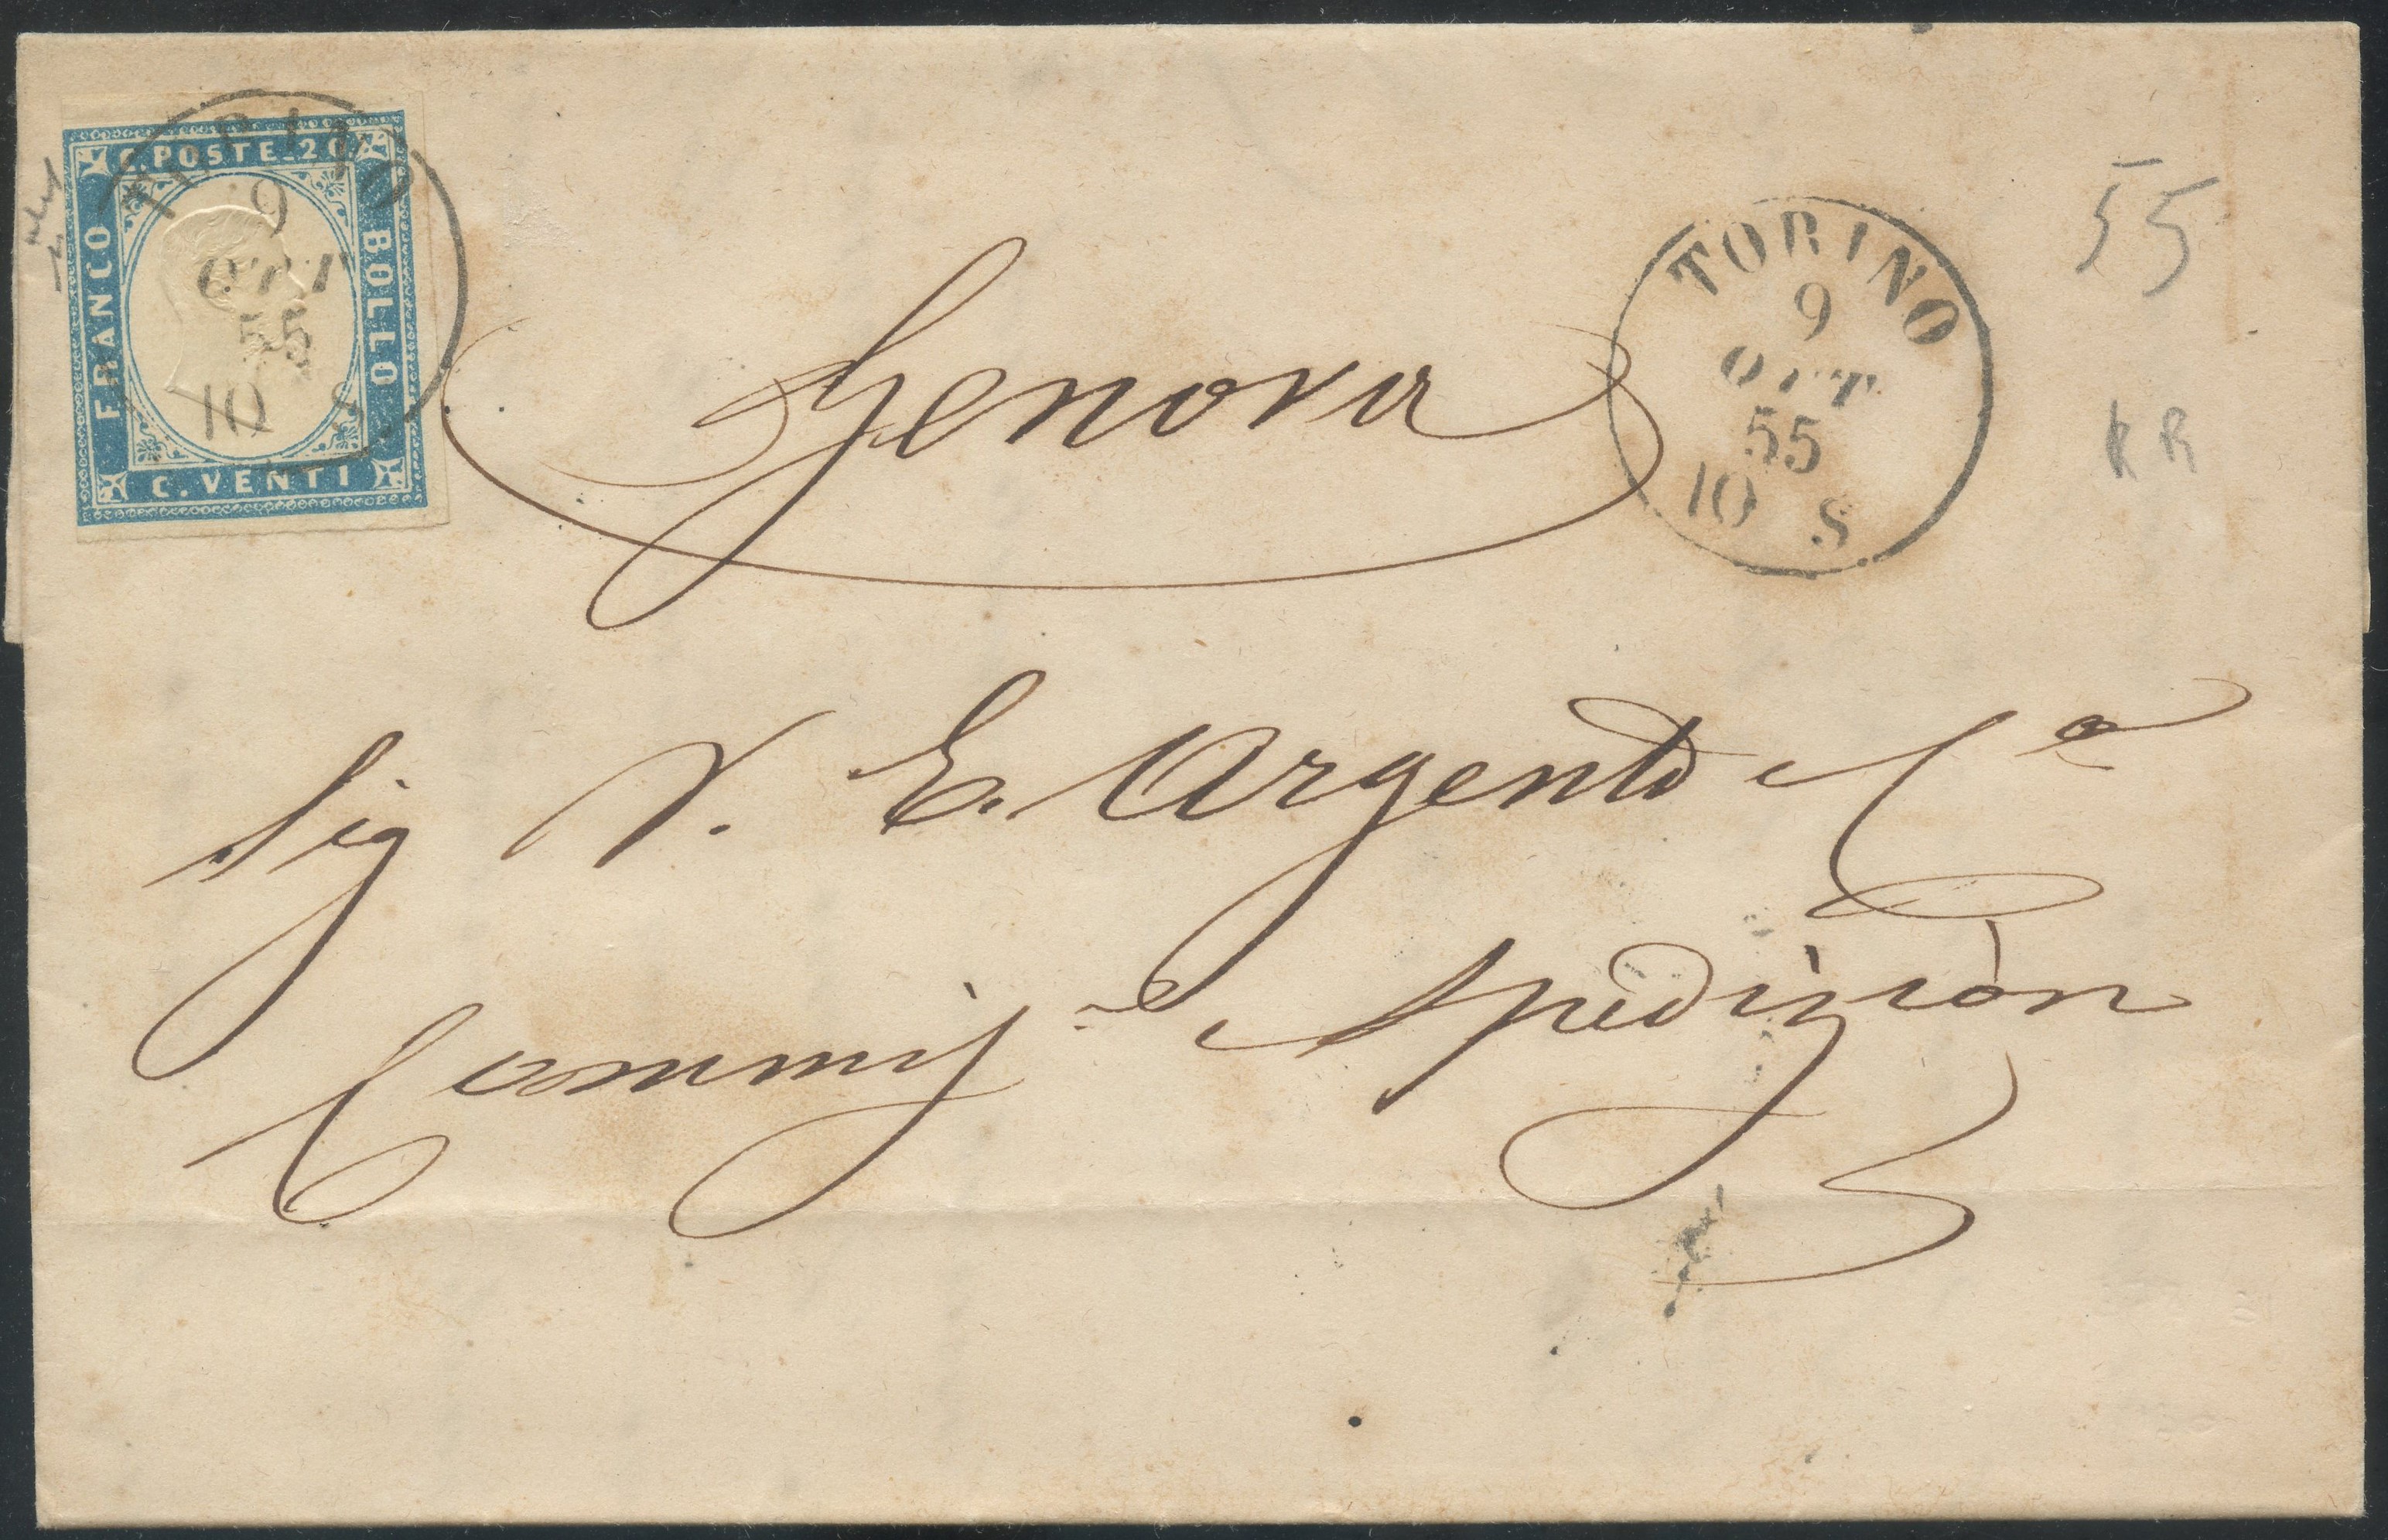 C. POSTE. 20
FRANCO
BOLLO
C. VENTI
TORINO
9
OTT
55
10 S
Genova
TORINO
9
OTT
55
10 S
55
R R
Sig V. E. Argento
Commis e Spedizion